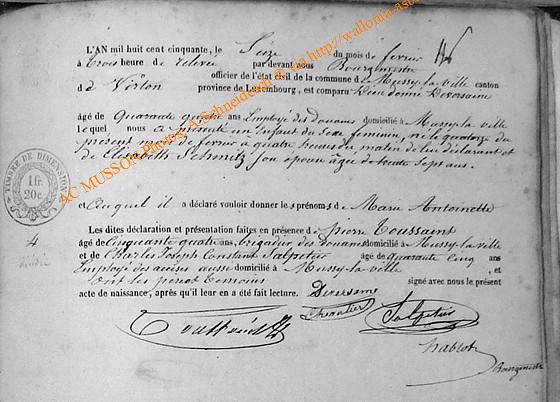 L'AN mil huit cent cinquante, le Seize du mois de fevrier
à trois heure de relevée par devant nous Bourgmestre
officier de l'état civil de la commune de Mussy-la-ville canton
d de Virton province de Luxembourg, est comparu Dieudonné Deversaine
âgé de Quarante quatre ans Employé des Douanes domicilié à Mussy-la-ville
lequel nous a présenté un Enfant du Sexe feminin, né le quatorze du
présent mois de fevrier à quatre heures du matin de lui déclarant et
de Elisabeth Schmitz son epouse âgée de trente sept ans.
et auquel il a déclaré vouloir donner les prénoms de Marie Antoinette
Les dites déclaration et présentation faites en présence de pierre Toussaint
âgé de Cinquante quatre ans, brigadier des Douanes domicilié à Mussy-la-ville
et de Charles Joseph Constant Salpeteur âgé de quarante Cinq ans
Employé des accises aussi domicilié à Mussy-la-ville, et
ont les père et témoins signé avec nous le présent
acte de naissance, après qu'il leur en a été fait lecture. Deversaine
TIMBRE DE DIMENSION
1 fr.
20c.
4
AC MUSSON Photos A. Schneidesch @ via http://wallonia-as